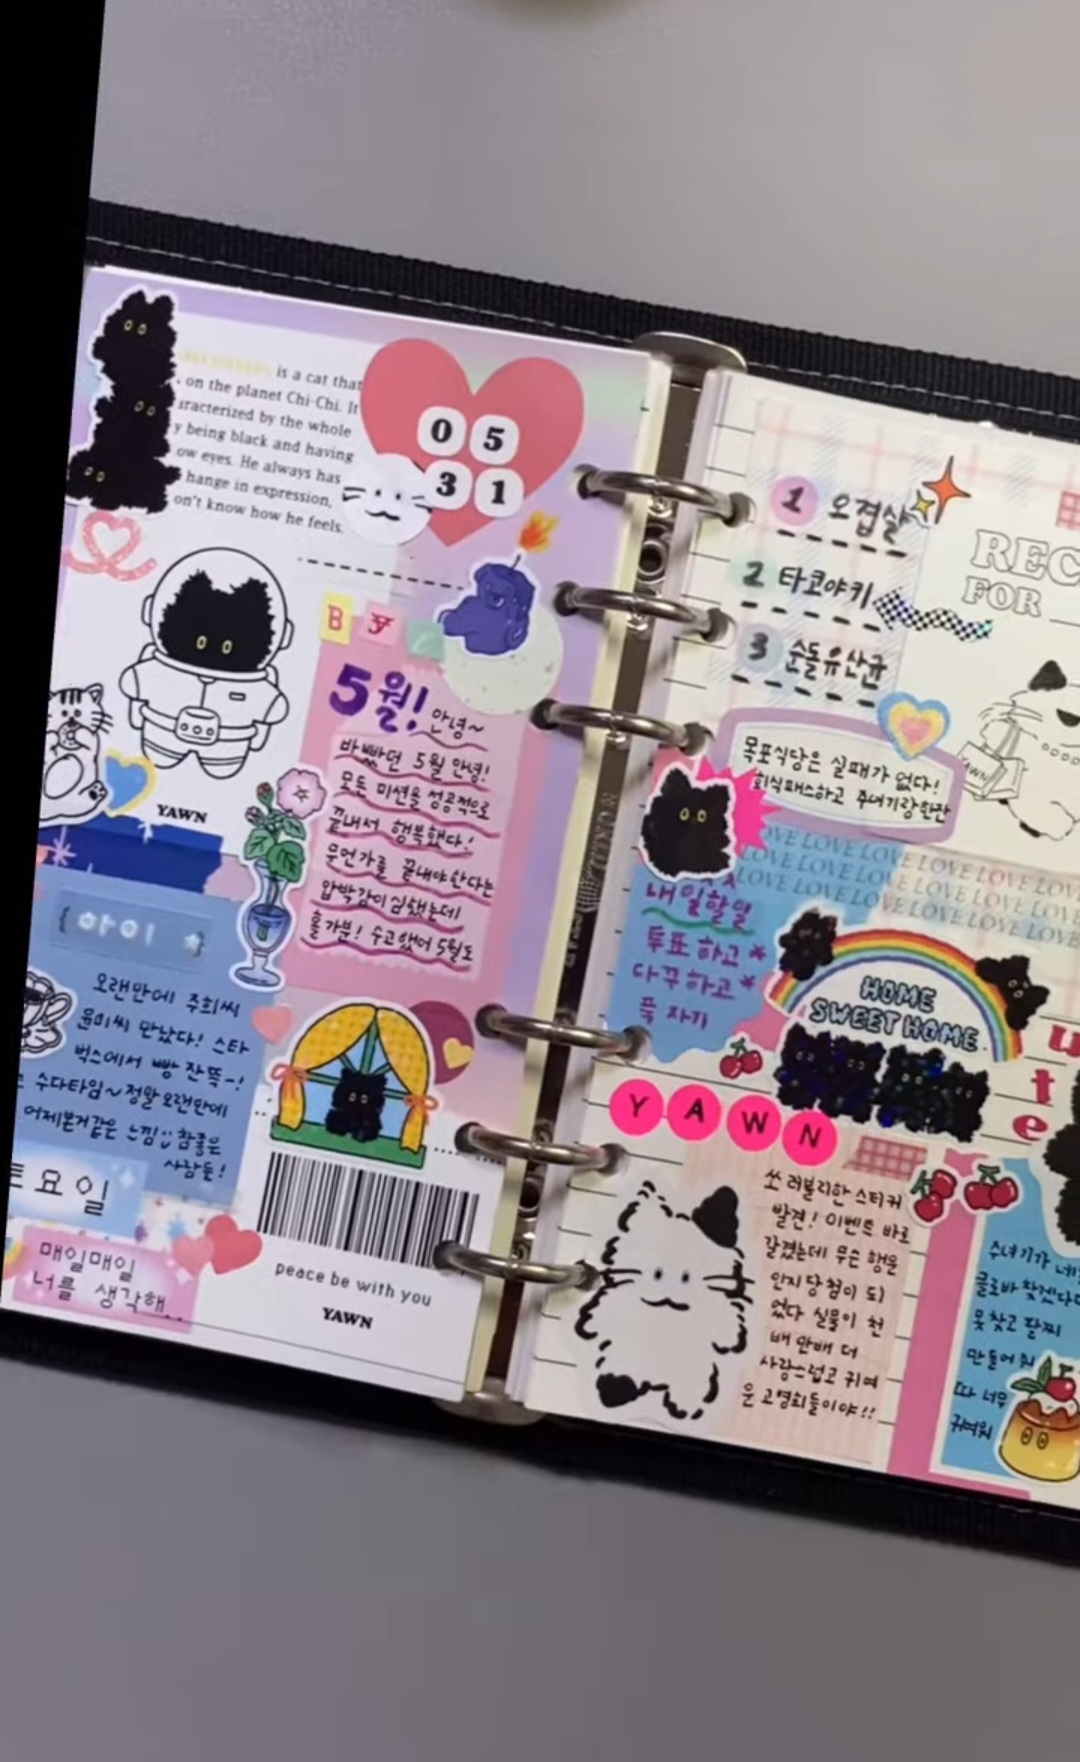 is a cat that
on the planet Chi-Chi. It
by the whole
being black and having
eyes. He always has
in expression,
know how he feels.
05
31
B
5월! 안녕~
바빴던 5월 안녕!
모든 미션을 성공적으로
끝내서 행복했다!
무언가를 끝내야한다는
압박감이 심했는데
홀가분! 수고했어 5월도
YAWN
{ 하이 ★ }
오랜만에 주희씨
윤미씨 만났다! 스타
벅스에서 빵 잔뜩-!
수다타임~정말 오랜만에
어제본거같은 느낌 참좋은
사람들!
토요일
매일매일
너를 생각해..
peace be with you
YAWN
1 오겹살
2 타코야키
3 순돌유산균
REC
FOR
YAWN
목표식당은 실패가 없다!
회식패스하고 주녀기랑한잔
LOVE LOVE LOVE LOVE LOVE
LOVE LOVE LOVE LOVE LOVE
LOVE LOVE LOVE LOVE LOVE
LOVE LOVE LOVE LOVE
내일할일
투표하고*
다꾸하고*
푹 자기
HOME
SWEET HOME
u
t
e
YAWN
쏘 러블리한 스티커
발견! 이벤트 바로
갈겼는데 무슨 행운
인지 당첨이 되
었다 실물이 천
배 만배 더
사랑스럽고 귀여
운 고영희들이야!!
수녀기가
클로바 찾겠다
못찾고 팔찌
만들어줘
따 너무
귀여워